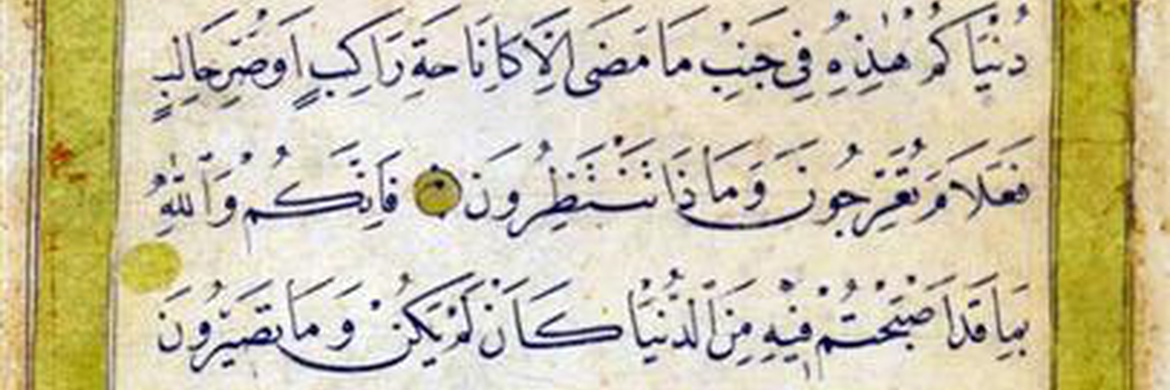 دُنْيَاكُمْ هٰذِهِ فِي جَنْبِ مَا مَضَى اِلَّا كَاِنَاحَةِ رَاكِبٍ اَوْ ضَرِّ حَالِبٍ
فَعَلَامَ تُعَرِّجُونَ وَمَاذَا تَنْتَظِرُونَ فَاِنَّكُمْ وَاللّٰهِ
بِمَا قَدْ اَصْبَحْتُمْ فِيْهِ مِنَ الدُّنْيَا كَاَنْ لَمْ يَكُنْ وَمَا تَصِيْرُونَ